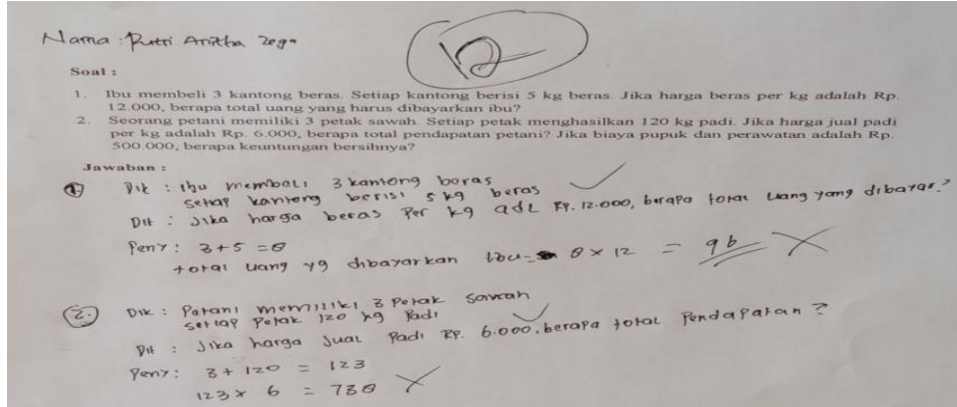 Nama : Putri Anitha Zega
12
Soal :
1. Ibu membeli 3 kantong beras. Setiap kantong berisi 5 kg beras. Jika harga beras per kg adalah Rp.
12.000, berapa total uang yang harus dibayarkan ibu?
2. Seorang petani memiliki 3 petak sawah. Setiap petak menghasilkan 120 kg padi. Jika harga jual padi
per kg adalah Rp. 6.000, berapa total pendapatan petani? Jika biaya pupuk dan perawatan adalah Rp.
500.000, berapa keuntungan bersihnya?
Jawaban :
1. Dik : Ibu membeli 3 kantong beras
setiap kantong berisi 5 kg beras
Dit : Jika harga beras Per kg adl Rp. 12.000, berapa total uang yang dibayar?
Peny : 3+5 = 8
total uang yg dibayarkan Ibu = 8 x 12 = 96
2. Dik : Patani memiliki 3 Petak sawah
setiap Petak 120 kg Padi
Dit : Jika harga Jual Padi Rp. 6.000. berapa total Pendapatan ?
Peny : 3 + 120 = 123
123 x 6 = 738